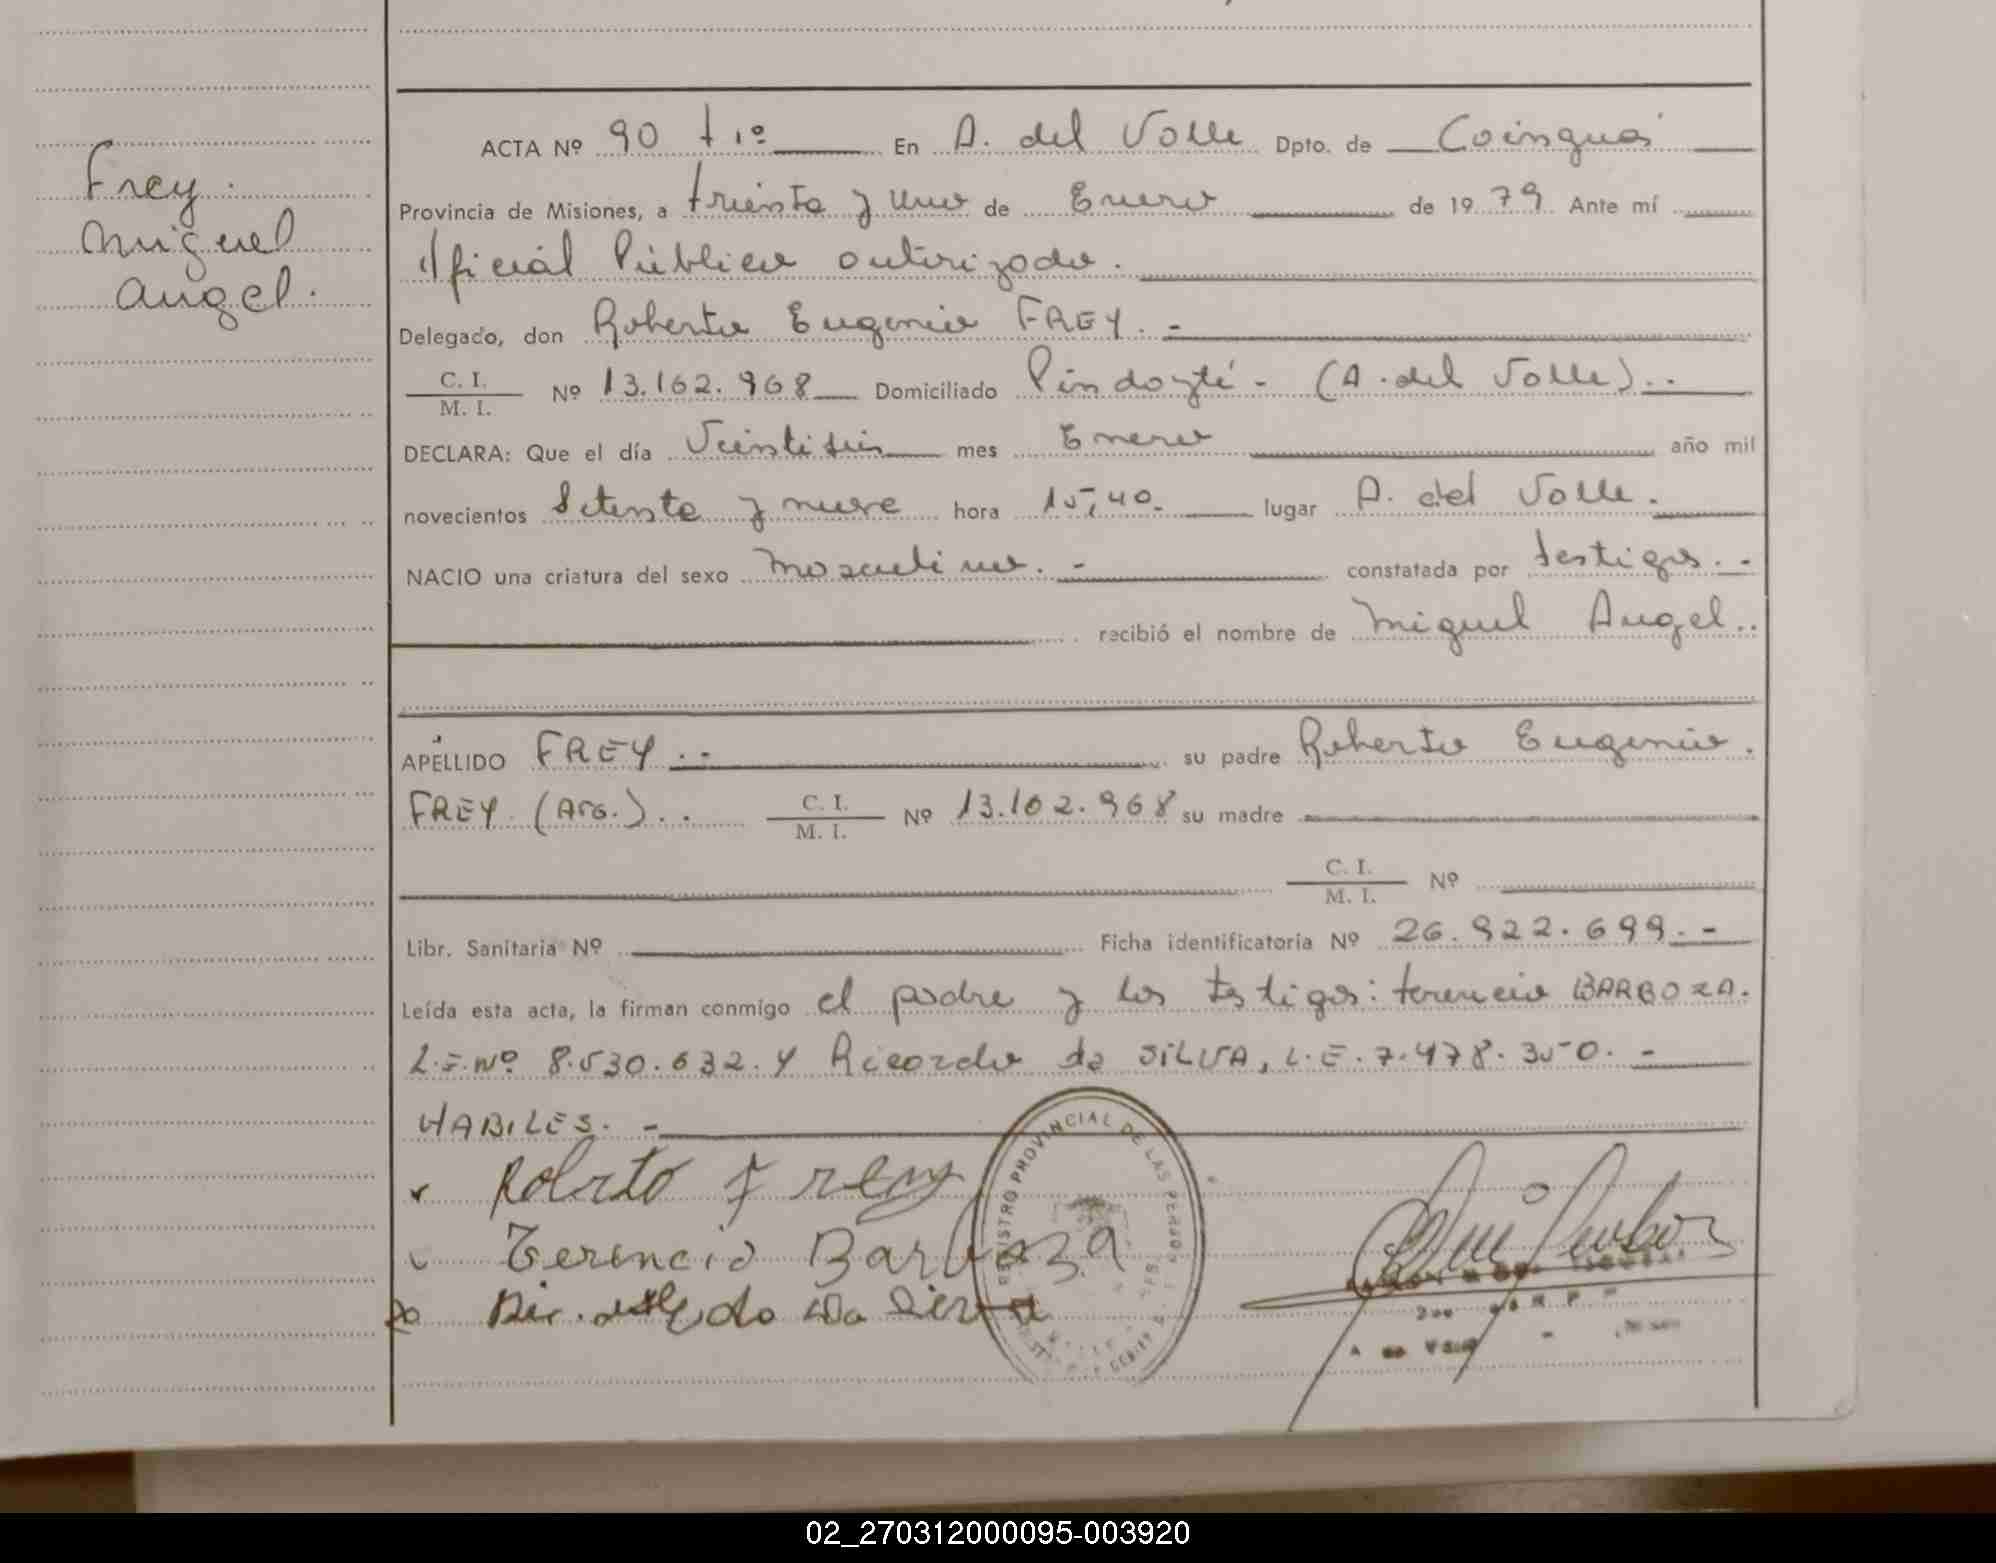 Frey
Miguel
Angel.
ACTA Nº 90 t 1º En A. del Valle Dpto. de Cainguás
Provincia de Misiones, a treinta y uno de Enero de 1979 Ante mí
Oficial Público autorizado.
Delegado, don Roberto Eugenio FREY. -
C. I. / M. I. Nº 13.162.968 Domiciliado Pindayté - (A. del Valle)..
DECLARA: Que el día Veintiseis mes Enero año mil
novecientos Setenta y nueve hora 15,40. lugar A. del Valle.
NACIO una criatura del sexo masculino. - constatada por testigos. -
recibió el nombre de Miguel Angel..
APELLIDO FREY . - su padre Roberto Eugenio.
FREY. (Arg.) . . C. I. / M. I. Nº 13.162.968 su madre
C. I. / M. I. Nº
Libr. Sanitaria Nº Ficha identificatoria Nº 26.922.699. -
Leída esta acta, la firman conmigo el padre y los testigos: terencio BARBOZA.
L.E.Nº 8.530.632. y Ricardo da SILVA, L.E. 7.478.350. -
HABILES. -
Roberto Frey
Terencio Barboza
REGISTRO PROVINCIAL DE LAS PERSONAS
02_270312000095-003920